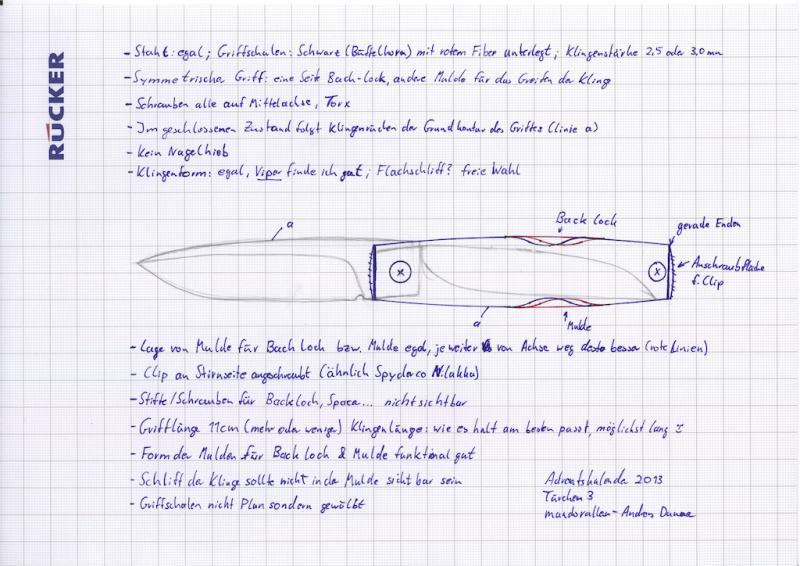 RÜCKER
- Stahl: egal; Griffschalen: Schwarz (Büffelhorn) mit rotem Fiber unterlegt; Klingenstärke 2,5 oder 3,0 mm
- Symmetrischer Griff: eine Seite Back-lock, andere Mulde für das Greifen der Klinge
- Schrauben alle auf Mittelachse, Torx
- Im geschlossenen Zustand folgt Klingenrücken der Grundkontur des Griffes (Linie a)
- Kein Nagelhieb
- Klingenform: egal, Viper finde ich gut; Flachschliff? freie Wahl
Back lock
a
gerade Enden
Anschraubfläche
f. Clip
a
Mulde
- Lage von Mulde für Back lock bzw. Mulde egal, je weiter von Achse weg desto besser (rote Linien)
- Clip an Stirnseite angeschraubt (ähnlich Spyderco Nilakka)
- Stifte/Schrauben für Backlock, Spacer... nicht sichtbar
- Grifflänge 11cm (mehr oder weniger) Klingenlänge: wie es halt am besten passt, möglichst lang
- Form der Mulden für Back lock & Mulde funktional gut
- Schliff der Klinge sollte nicht in der Mulde sichtbar sein
- Griffschalen nicht Plan sondern gewölbt
Adventskalender 2013
Türchen 3
- Andreas